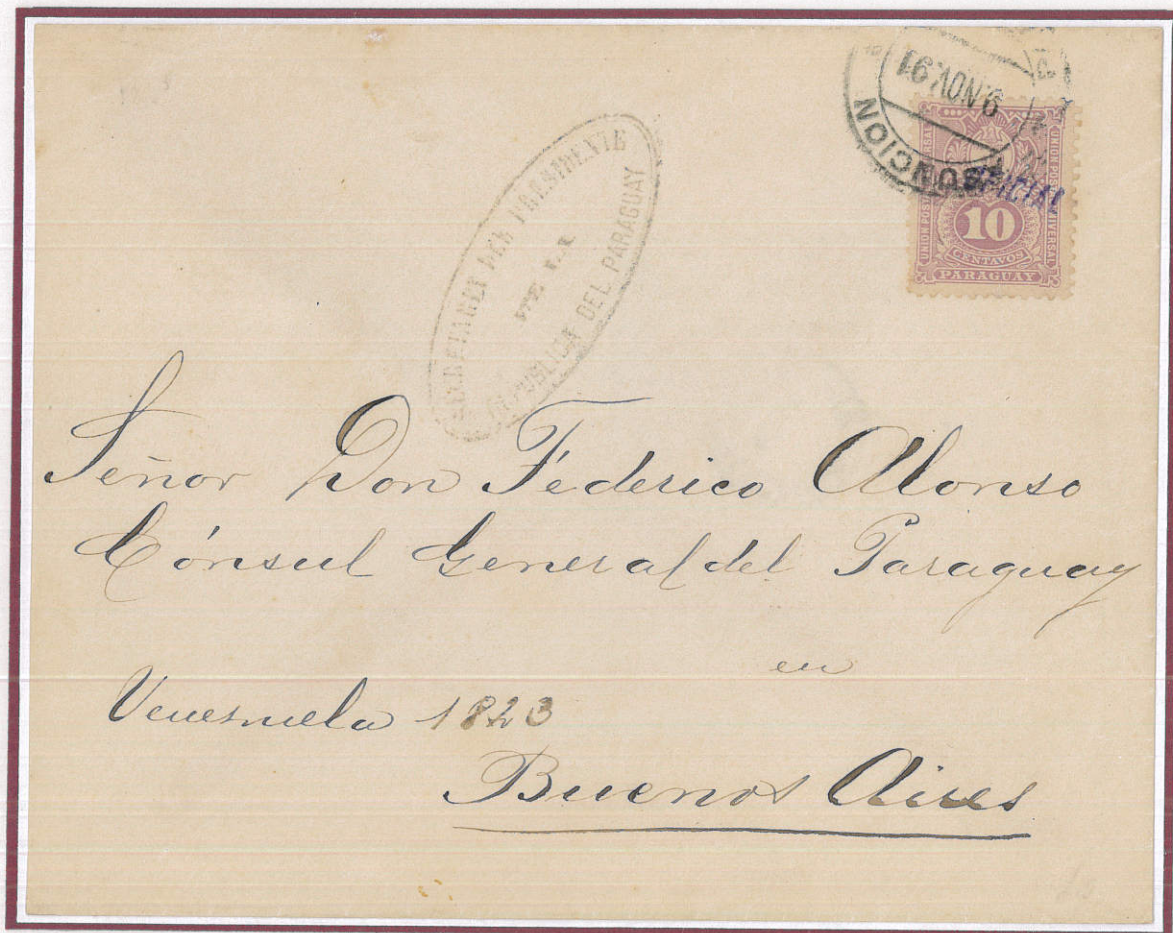 ASUNCION
9.NOV.91
UNION POSTAL UNIVERSAL
OFICIAL
10
CENTAVOS
PARAGUAY
SECRETARIA DEL PRESIDENTE
DE LA
REPUBLICA DEL PARAGUAY
Señor Don Féderico Alonso
Cónsul General del Paraguay
en
Venesuela 1823
Buenos Aires